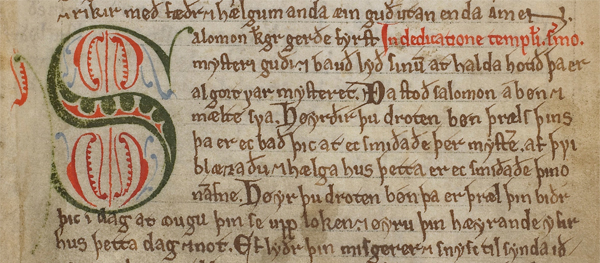 ríkir með fæðr ⁊ hælgum anda æin guð utan enda amen
Salomon kgr gerðe fyrst In dedicatione templi. sermo.
mysteri guði ⁊ bauð lyð sinū at halda hotið þa er
algort var mysteret. Ða stoð salomon a bøn ⁊
mælte sva. Høyrðu þu droten bøn þræls þins
þa er ec bað þic at ec smiðaðe þer myste. at þu
blæzaðu ⁊ hælga hus þetta er ec smiðaðe þino
nafne. Høyr þu droten bøn þa er þræl þin biðr
þic i dag at øugu þin se upp loken ⁊ øyru þin hæyrande yfir
hus þetta dag ⁊ not. Ef lyðr þin misgerer ⁊ snysc til synda